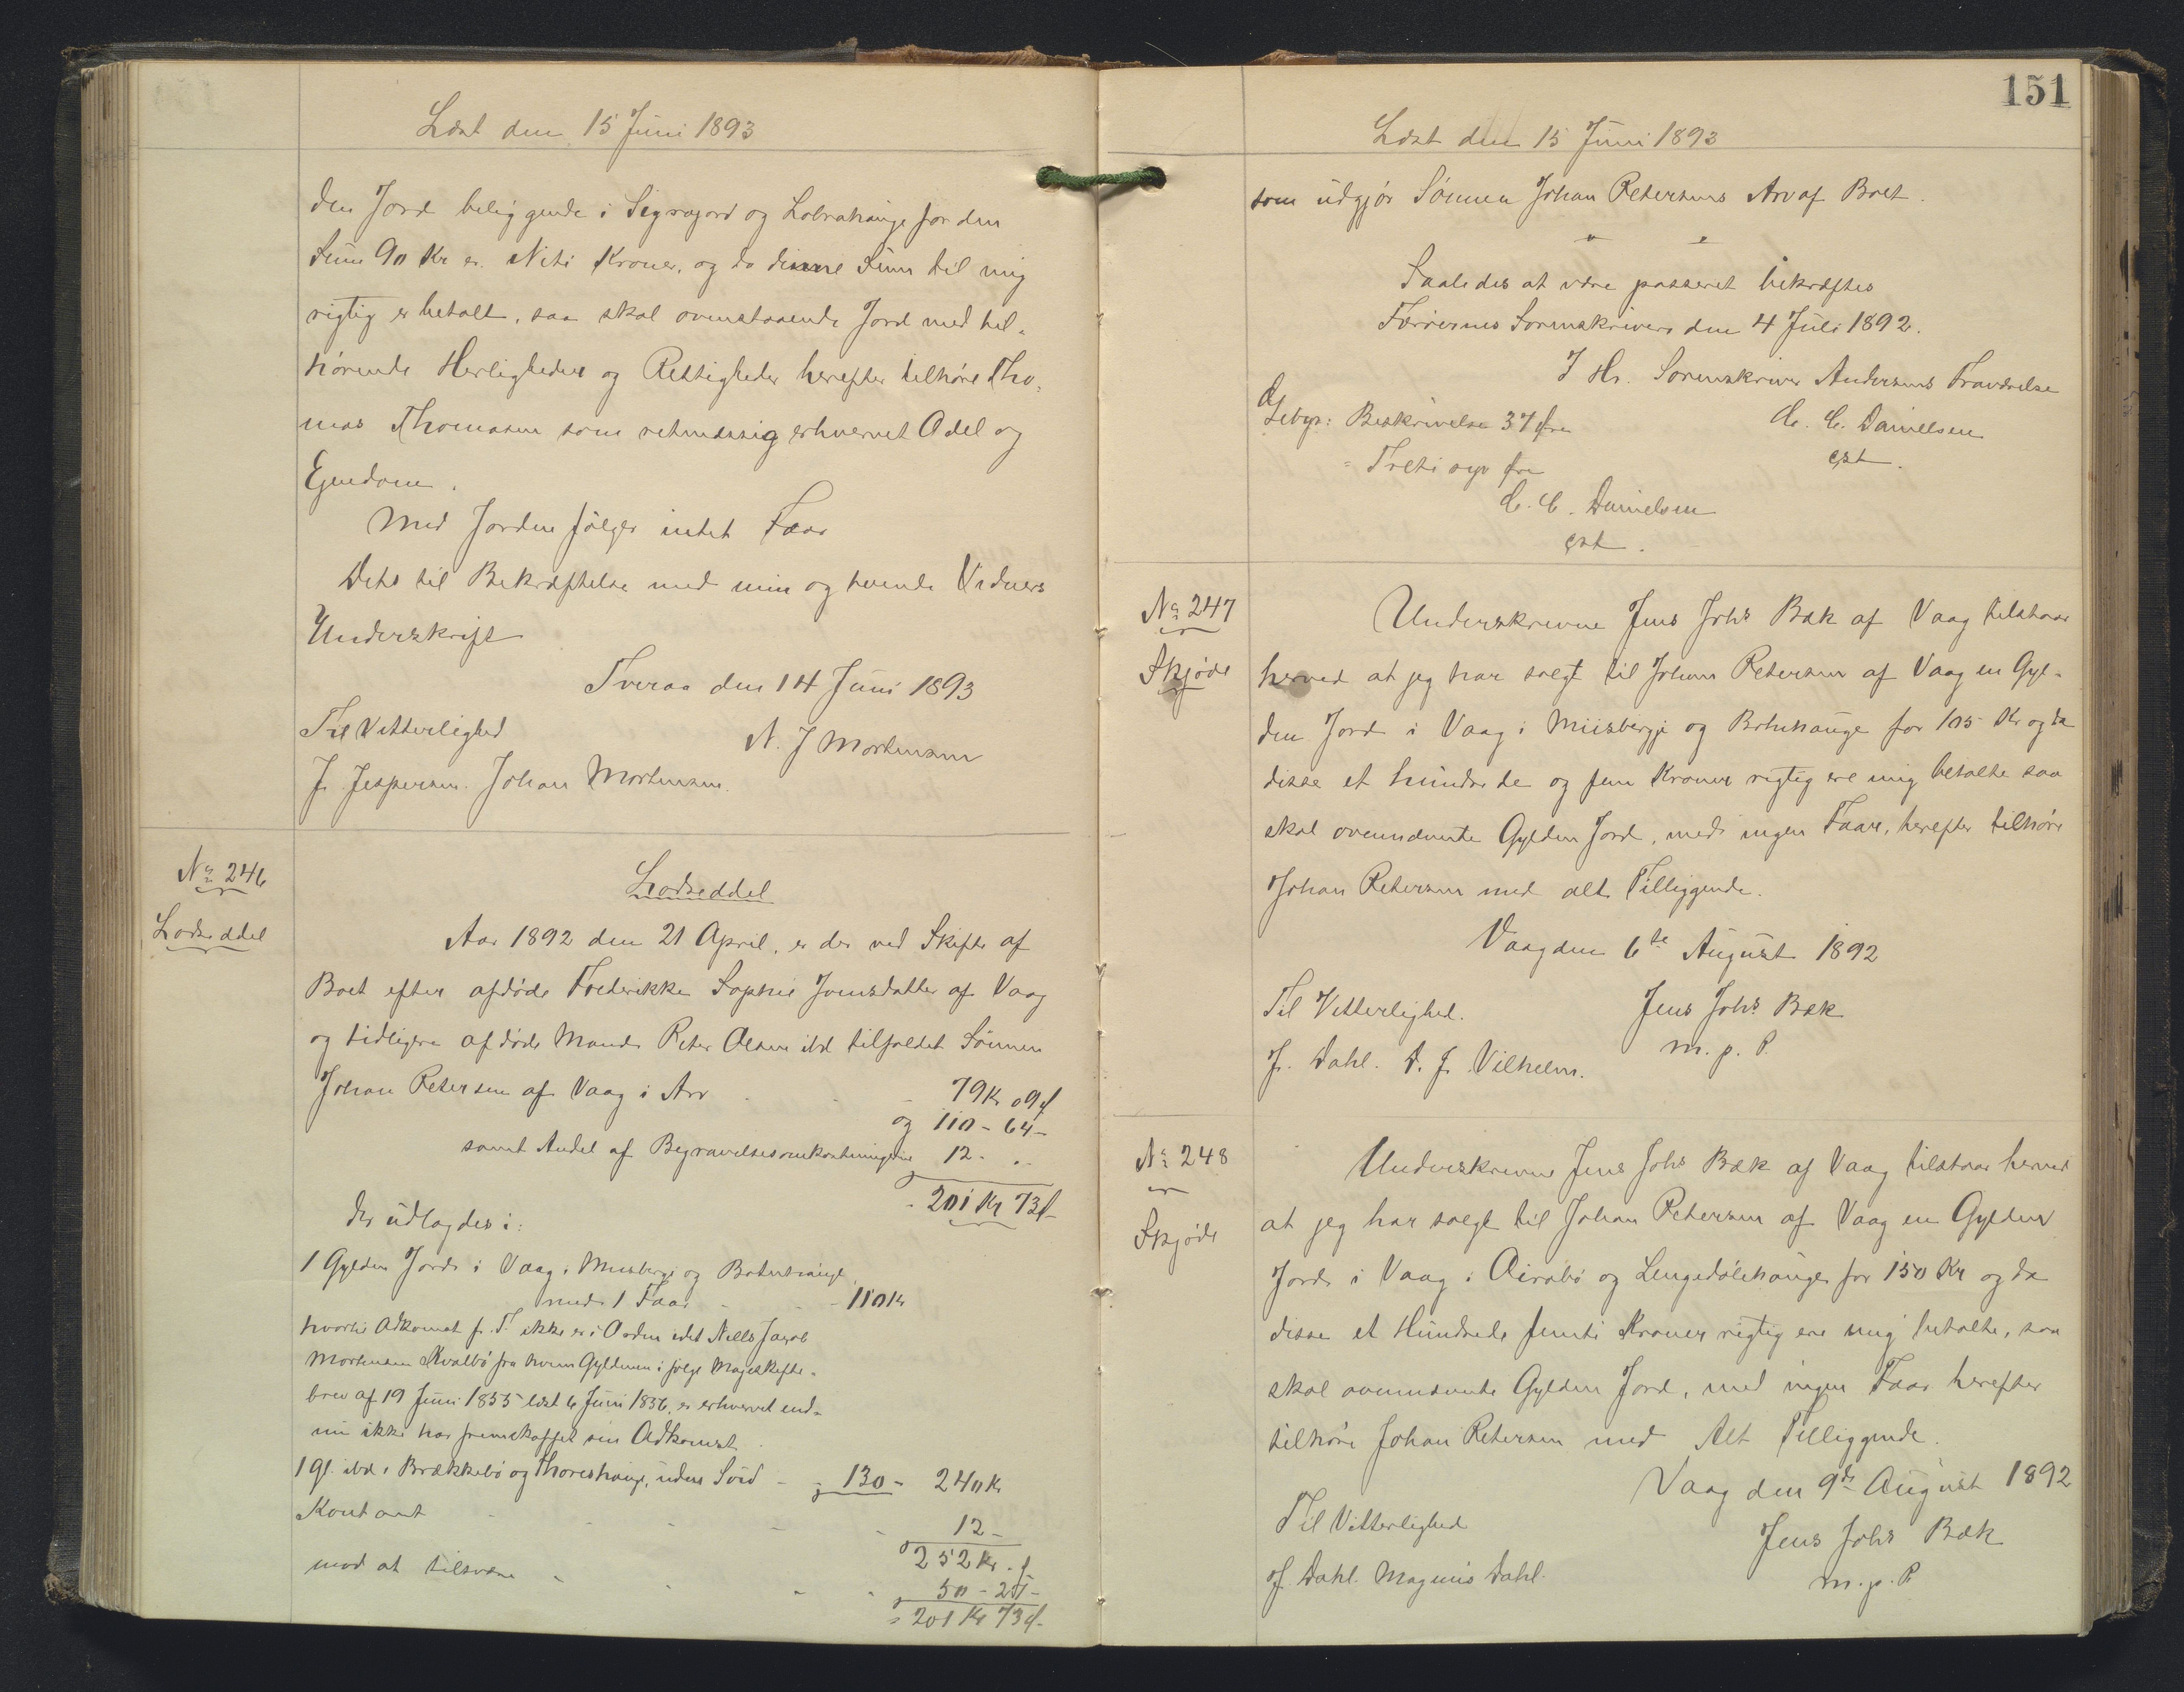 Læst den 15 Juni 1893
den Jord beliggende i Sigragjord og Lobrahauge for den
Sum 90 Kr er. Niti Kroner, og da denne Sum til mig
rigtig er betalt, saa skal ovenstaaende Jord med til-
hørende Herligheder og Rettigheder herefter tilhøre Tho-
mas Thomasen som retmæssig erhvervet Odel og
Ejendom.
Med Jorden følger intet Faar
Dets til Bekræftelse med min og tvende Vidners
Underskrift
Tveraa den 14 Juni 1893
Til Vitterlighed
N. J Mortensen
J. Jespersen. Johan Mortensen.
No 246
Lodseddel
Lodseddel
Aar 1892 den 21 April, er der ved Skifte af
Boet efter afdøde Frederikke Sophie Joensdatter af Vaag
og tidligere afdøde Mand Peter Olsen ibd tilfaldet Sønnen
Johan Petersen af Vaag i Arv - - 79 Kr 09 Ø
og 110 - 64 -
samt Andel af Begravelsesomkostningerne 12 - "
- 201 Kr 73 Ø
der udlagdes i:
1 Gylden Jord i Vaag i Musberge og Botnhauge
med 1 Faar - - 110 Kr
hvortil Adkomst p. T. ikke er i Orden idet Niels Jacob
Mortensen Kvalbø fra hvem Gylden i følge Mageskifte-
brev af 19 Juni 1855 læst 6 Juni 1856, er erhvervet end-
nu ikke har fremskaffet sin Adkomst
1 Gl. ibd i Brækkebø og Thoreshauge, uden Soid - 130 - 240 Kr
Kontant - - - - 12 -
252 Kr - Ø
mod at tilsvare - - - 50 - 27 -
= 201 Kr 73 Ø -
151
Læst den 15 Juni 1893
som udgjør Sønnen Johan Petersens Arv af Boet.
Saaledes at være passeret bekræftes
Færøernes Sorenskriveri den 4 Juli 1892.
I Hr. Sorenskriver Andersens Fraværelse
Gebyr: Beskrivelse 37 Øre
C. C. Danielsen
= Treti syv Øre
cst.
C. C. Danielsen
cst.
No 247
Skjøde
Underskrevne Jens Johs Bæk af Vaag tilstaar
herved at jeg har solgt til Johan Petersen af Vaag en Gyl-
den Jord i Vaag i Miisbergje og Botnhauge for 105 Kr og da
disse et hundrede og fem Kroner rigtig ere mig betalte saa
skal ovennævnte Gylden Jord, med ingen Faar, herefter tilhøre
Johan Petersen med alt Tilliggende.
Vaag den 6te August 1892
Til Vitterlighed.
Jens Johs Bæk
J. Dahl. D. J. Vilhelm.
m. p. P.
No 248
Skjøde
Underskrevne Jens Johs Bæk af Vaag tilstaar herved
at jeg har solgt til Johan Petersen af Vaag en Gylden
Jord i Vaag i Airabø og Lengedølehauge for 150 Kr og da
disse et Hundrede femti Kroner rigtig ere mig betalte, saa
skal ovennævnte Gylden Jord, med ingen Faar herefter
tilhøre Johan Petersen med Alt Tilliggende.
Vaag den 9de August 1892
Til Vitterlighed
Jens Johs Bæk
J. Dahl. Magnus Dahl.
m. p. P